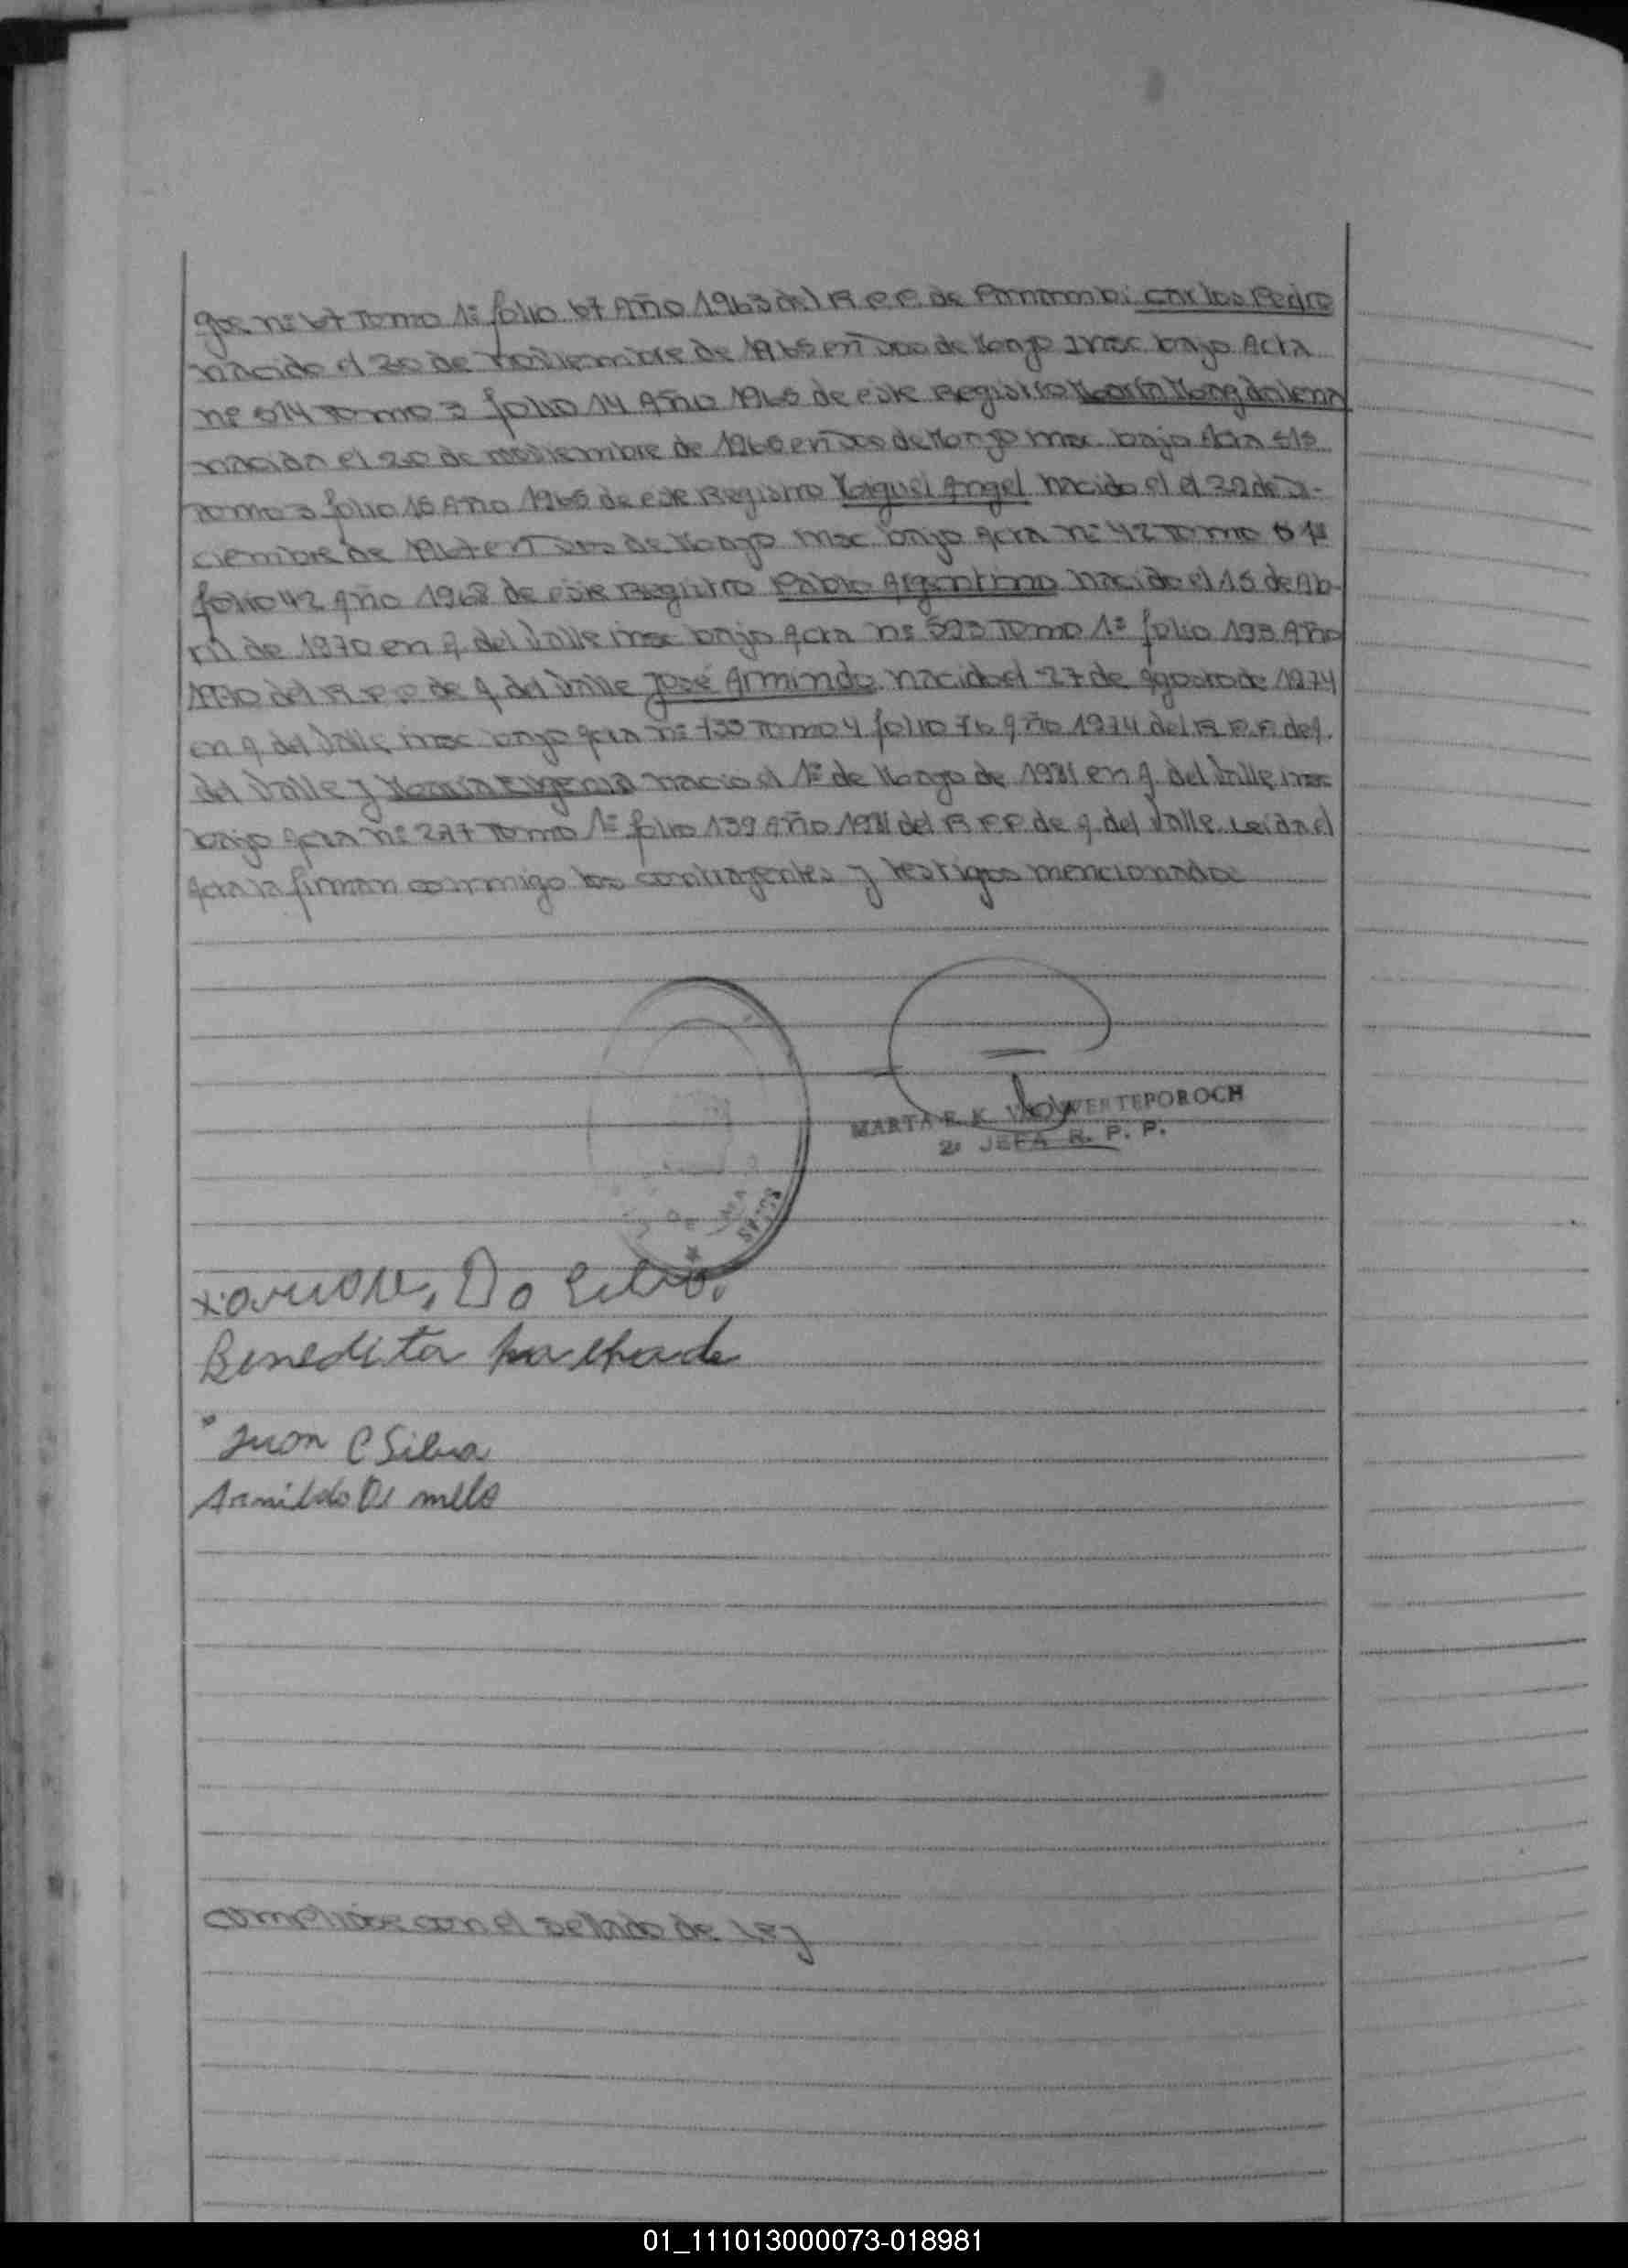 nº 67 Tomo 1º folio 67 Año 1963 del R.P.P. de Panambi: Carlos Pedro
nacido el 20 de noviembre de 1965 en 25 de Mayo Insc bajo Acta
nº 514 Tomo 3 folio 14 Año 1965 de este Registro María Magdalena
nacida el 20 de noviembre de 1965 en 25 de Mayo insc. bajo Acta 515
Tomo 3 folio 15 Año 1965 de este Registro Miguel Angel nacido el el 22 de Di-
ciembre de 1967 en 25 de Mayo insc bajo Acta nº 42 Tomo 1º
folio 42 Año 1968 de este Registro Pablo Argentino nacido el 15 de Ab-
ril de 1970 en A. del Valle insc bajo Acta nº 593 Tomo 1º folio 193 Año
1970 del R.P.P. de A. del Valle José Armindo nacido el 27 de Agosto de 1974
en A. del Valle, insc bajo Acta nº 733 Tomo 4 folio 76 Año 1974 del R.P.P. de A.
del Valle y María Eugenia nacio el 1º de Mayo de 1981 en A. del Valle, insc
bajo Acta nº 277 Tomo 1º folio 139 Año 1981 del R.P.P. de A. del Valle. Leida el
Acta la firman conmigo los contrayentes y testigos mencionados
MARTA E. K. WERTEPOROCH
2ª JEFA R. P. P.
Do Silva
Benedita
Juan C Silva
Arnildo De mello
Cumplióse con el sellado de Ley
01_111013000073-018981